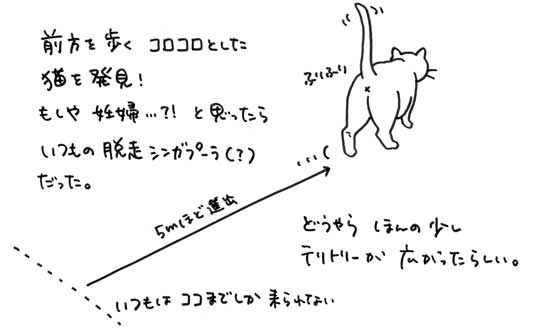 前方を歩く コロコロとした
猫を発見！
もしや 妊婦…?! と思ったら
いつもの 脱走シンガプーラ(?)
だった。
ふりふり
5mほど進出
どうやら ほんの少し
テリトリーが 広がったらしい。
いつもは ココまでしか 来られてない